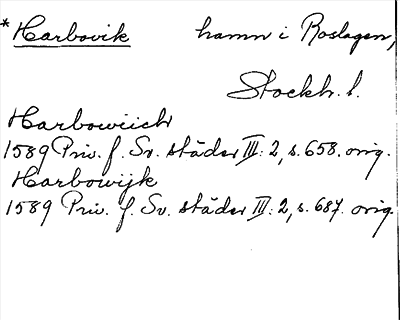 * Harbovik hamn i Roslagen,
Stockh. l.
Harbowiich
1589 Priv. f. Sv. städer III: 2, s. 658. orig.
Harbowijk
1589 Priv. f. Sv. städer III: 2, s. 687. orig.